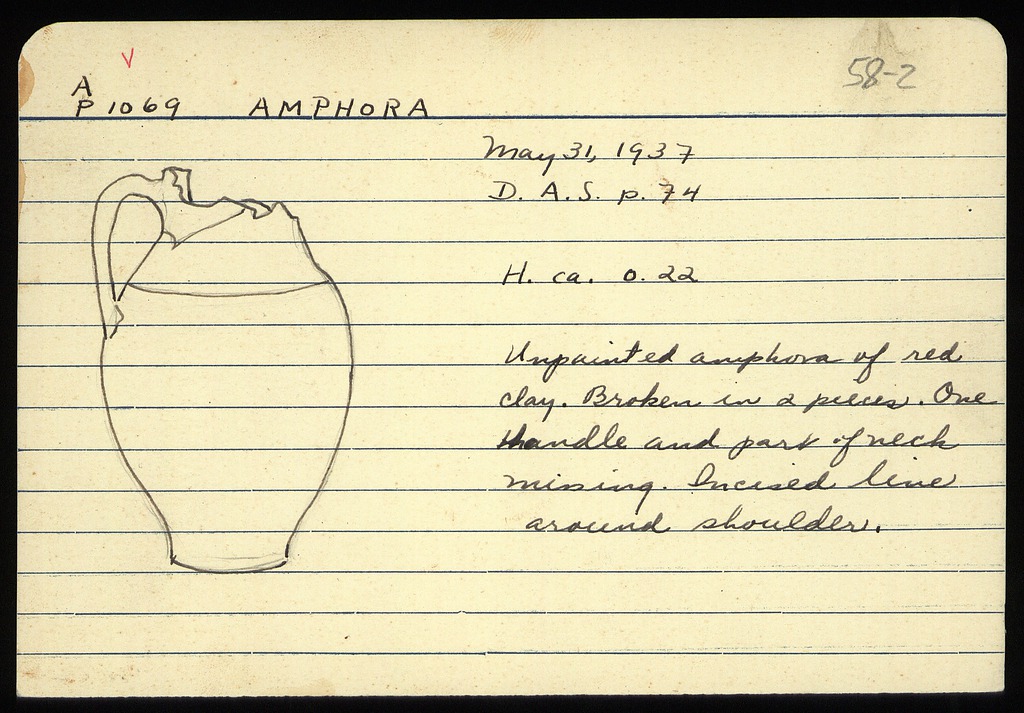 V
58-2
A
P 1069 AMPHORA
May 31, 1937
D. A. S. p. 74
H. ca. 0. 22
Unpainted amphora of red
clay. Broken in 2 pieces. One
handle and part of neck
missing. Incised line
around shoulder.